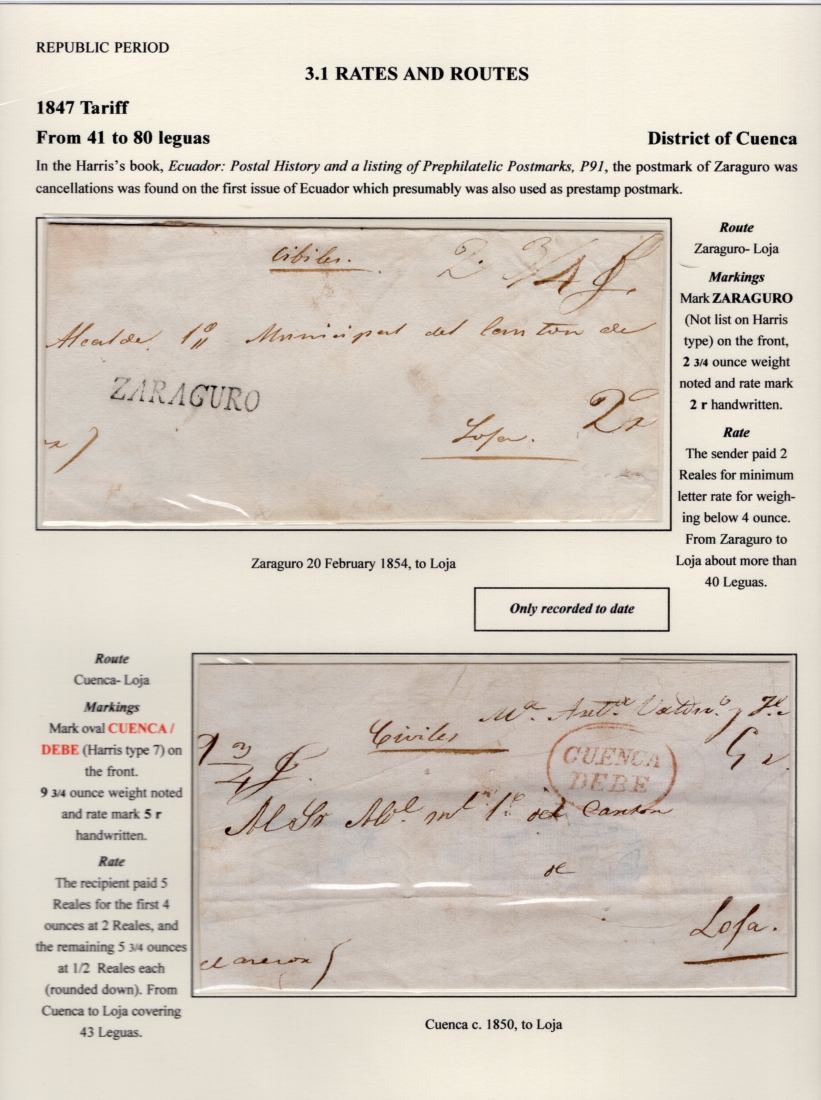 REPUBLIC PERIOD
3.1 RATES AND ROUTES
1847 Tariff
From 41 to 80 leguas
District of Cuenca
In the Harris's book, Ecuador: Postal History and a listing of Prephilatelic Postmarks, P91, the postmark of Zaraguro was
cancellations was found on the first issue of Ecuador which presumably was also used as prestamp postmark.
Cibiles.
2 3/4
Alcalde 1º Municipal del Canton de
ZARAGURO
2 r
Loja.
Route
Zaraguro- Loja
Markings
Mark ZARAGURO
(Not list on Harris
type) on the front,
2 3/4 ounce weight
noted and rate mark
2 r handwritten.
Rate
The sender paid 2
Reales for minimum
letter rate for weigh-
ing below 4 ounce.
From Zaraguro to
Loja about more than
40 Leguas.
Zaraguro 20 February 1854, to Loja
Only recorded to date
Route
Cuenca- Loja
Markings
Mark oval CUENCA /
DEBE (Harris type 7) on
the front.
9 3/4 ounce weight noted
and rate mark 5 r
handwritten.
Rate
The recipient paid 5
Reales for the first 4
ounces at 2 Reales, and
the remaining 5 3/4 ounces
at 1/2 Reales each
(rounded down). From
Cuenca to Loja covering
43 Leguas.
Civiles
9 3/4
CUENCA
DEBE
5 r.
Al Sr Alc.l m.l 1.º del Canton
de
Loja.
Cuenca c. 1850, to Loja